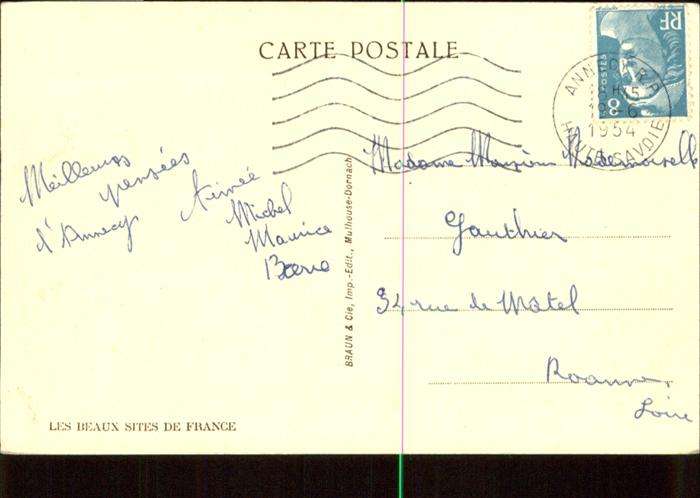 CARTE POSTALE
RF
POSTES
8
ANNECY R.P.
H15
1954
HAUTE SAVOIE
Meilleures
pensées
d'Annecy
Aimée
Michel
Maurice
BRAUN & Cie, Imp.-Edit., Mulhouse-Dornach
Madame Monsieur Mademoiselle
Gauthier
rue de Matel
Roanne,
Loire
LES BEAUX SITES DE FRANCE